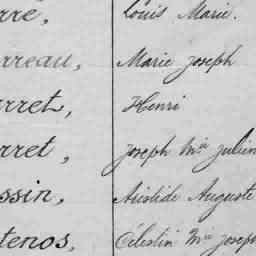 rre, Louis Marie.
rreau, Marie Joseph
rret, Henri
rret, Joseph Mie Julien
ssin, Aristide Auguste
tenos, Célestin Mie Joseph